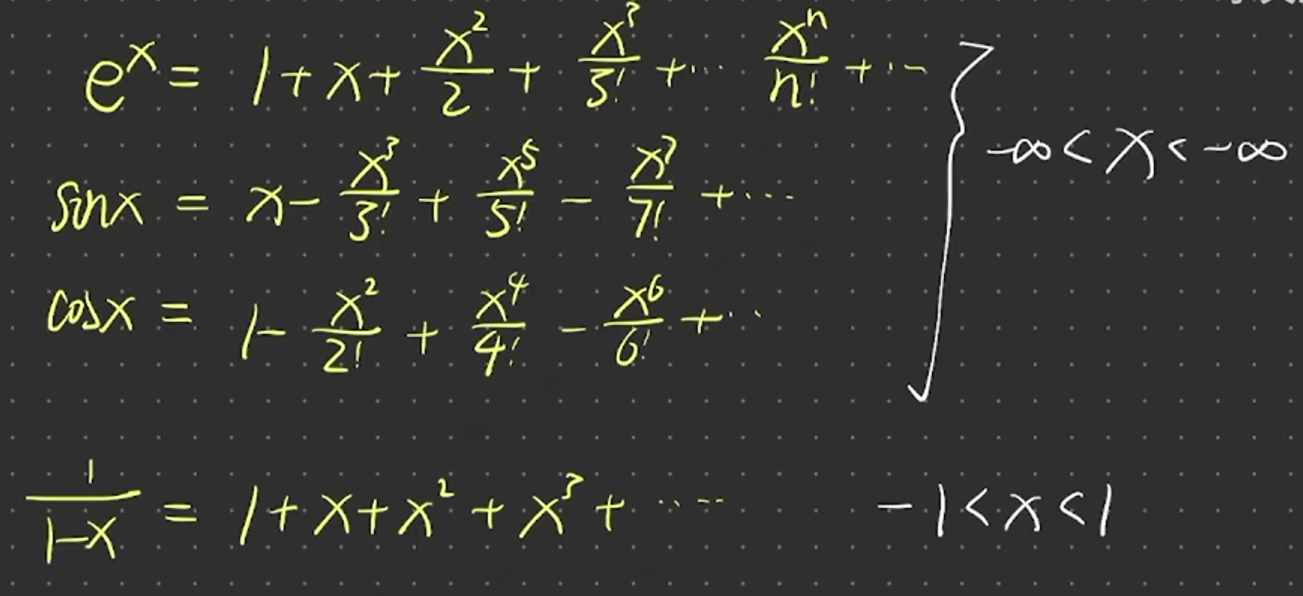 e^x = 1 + x + x^2/2 + x^3/3! + ... x^n/n! + ...
-∞ < x < -∞
sin x = x - x^3/3! + x^5/5! - x^7/7! + ...
cos x = 1 - x^2/2! + x^4/4! - x^6/6! + ...
1/(1-x) = 1 + x + x^2 + x^3 + ......
-1 < x < 1